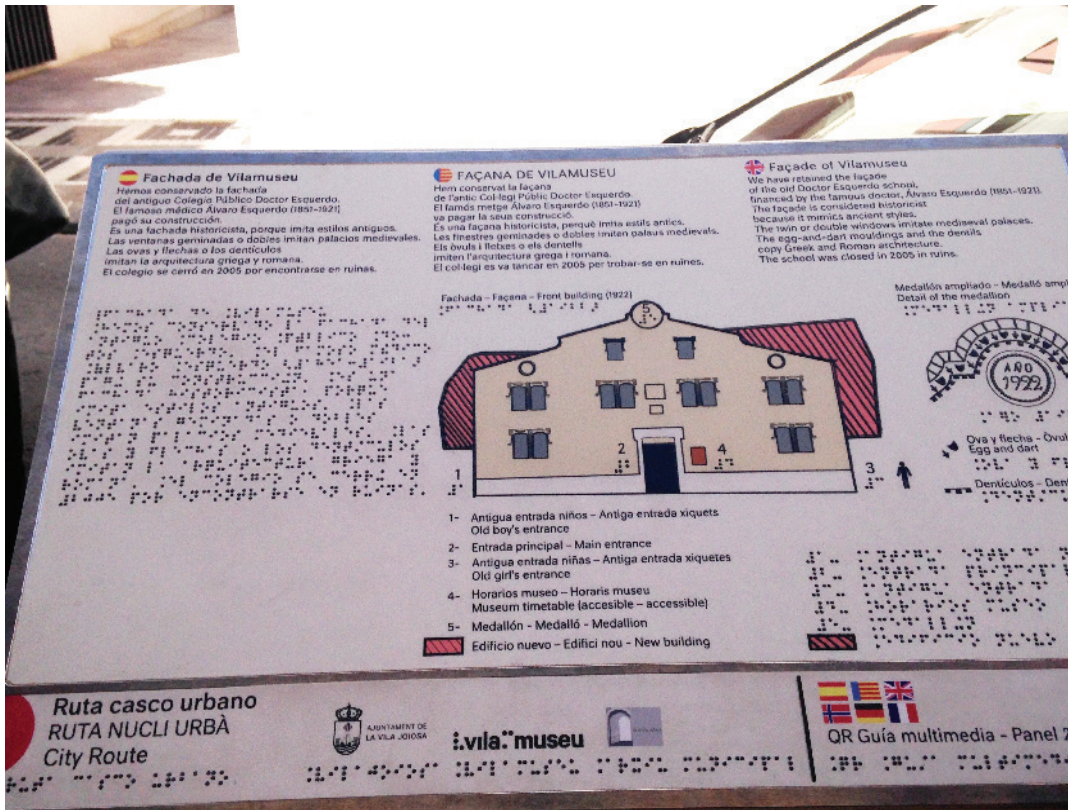 Fachada de Vilamuseu
Hemos conservado la fachada
del antiguo Colegio Público Doctor Esquerdo.
El famoso médico Álvaro Esquerdo (1851-1921)
pagó su construcción.
Es una fachada historicista, porque imita estilos antiguos.
Las ventanas geminadas o dobles imitan palacios medievales.
Las ovas y flechas o los dentículos
imitan la arquitectura griega y romana.
El colegio se cerró en 2005 por encontrarse en ruinas.
FAÇANA DE VILAMUSEU
Hem conservat la façana
de l'antic Col·legi Públic Doctor Esquerdo.
El famós metge Álvaro Esquerdo (1851-1921)
va pagar la seua construcció.
És una façana historicista, perquè imita estils antics.
Les finestres geminades o dobles imiten palaus medievals.
Els òvuls i fletxes o els dentells
imiten l'arquitectura grega i romana.
El col·legi es va tancar en 2005 per trobar-se en ruïnes.
Façade of Vilamuseu
We have retained the façade
of the old Doctor Esquerdo school,
financed by the famous doctor, Álvaro Esquerdo (1851-1921).
The façade is considered historicist
because it mimics ancient styles.
The twin or double windows imitate mediaeval palaces.
The egg-and-dart mouldings and the dentils
copy Greek and Roman architecture.
The school was closed in 2005 in ruins.
Fachada - Façana - Front building (1922)
5
2
4
1
3
Medallón ampliado - Medalló ampl
Detail of the medallion
AÑO
1922
Ova y flecha - Òvul
Egg and dart
Dentículos - Den
1- Antigua entrada niños - Antiga entrada xiquets
Old boy's entrance
2- Entrada principal - Main entrance
3- Antigua entrada niñas - Antiga entrada xiquetes
Old girl's entrance
4- Horarios museo - Horaris museu
Museum timetable (accesible - accessible)
5- Medallón - Medalló - Medallion
Edificio nuevo - Edifici nou - New building
Ruta casco urbano
RUTA NUCLI URBÀ
City Route
AJUNTAMENT DE
LA VILA JOIOSA
vila museu
QR Guía multimedia - Panel 2